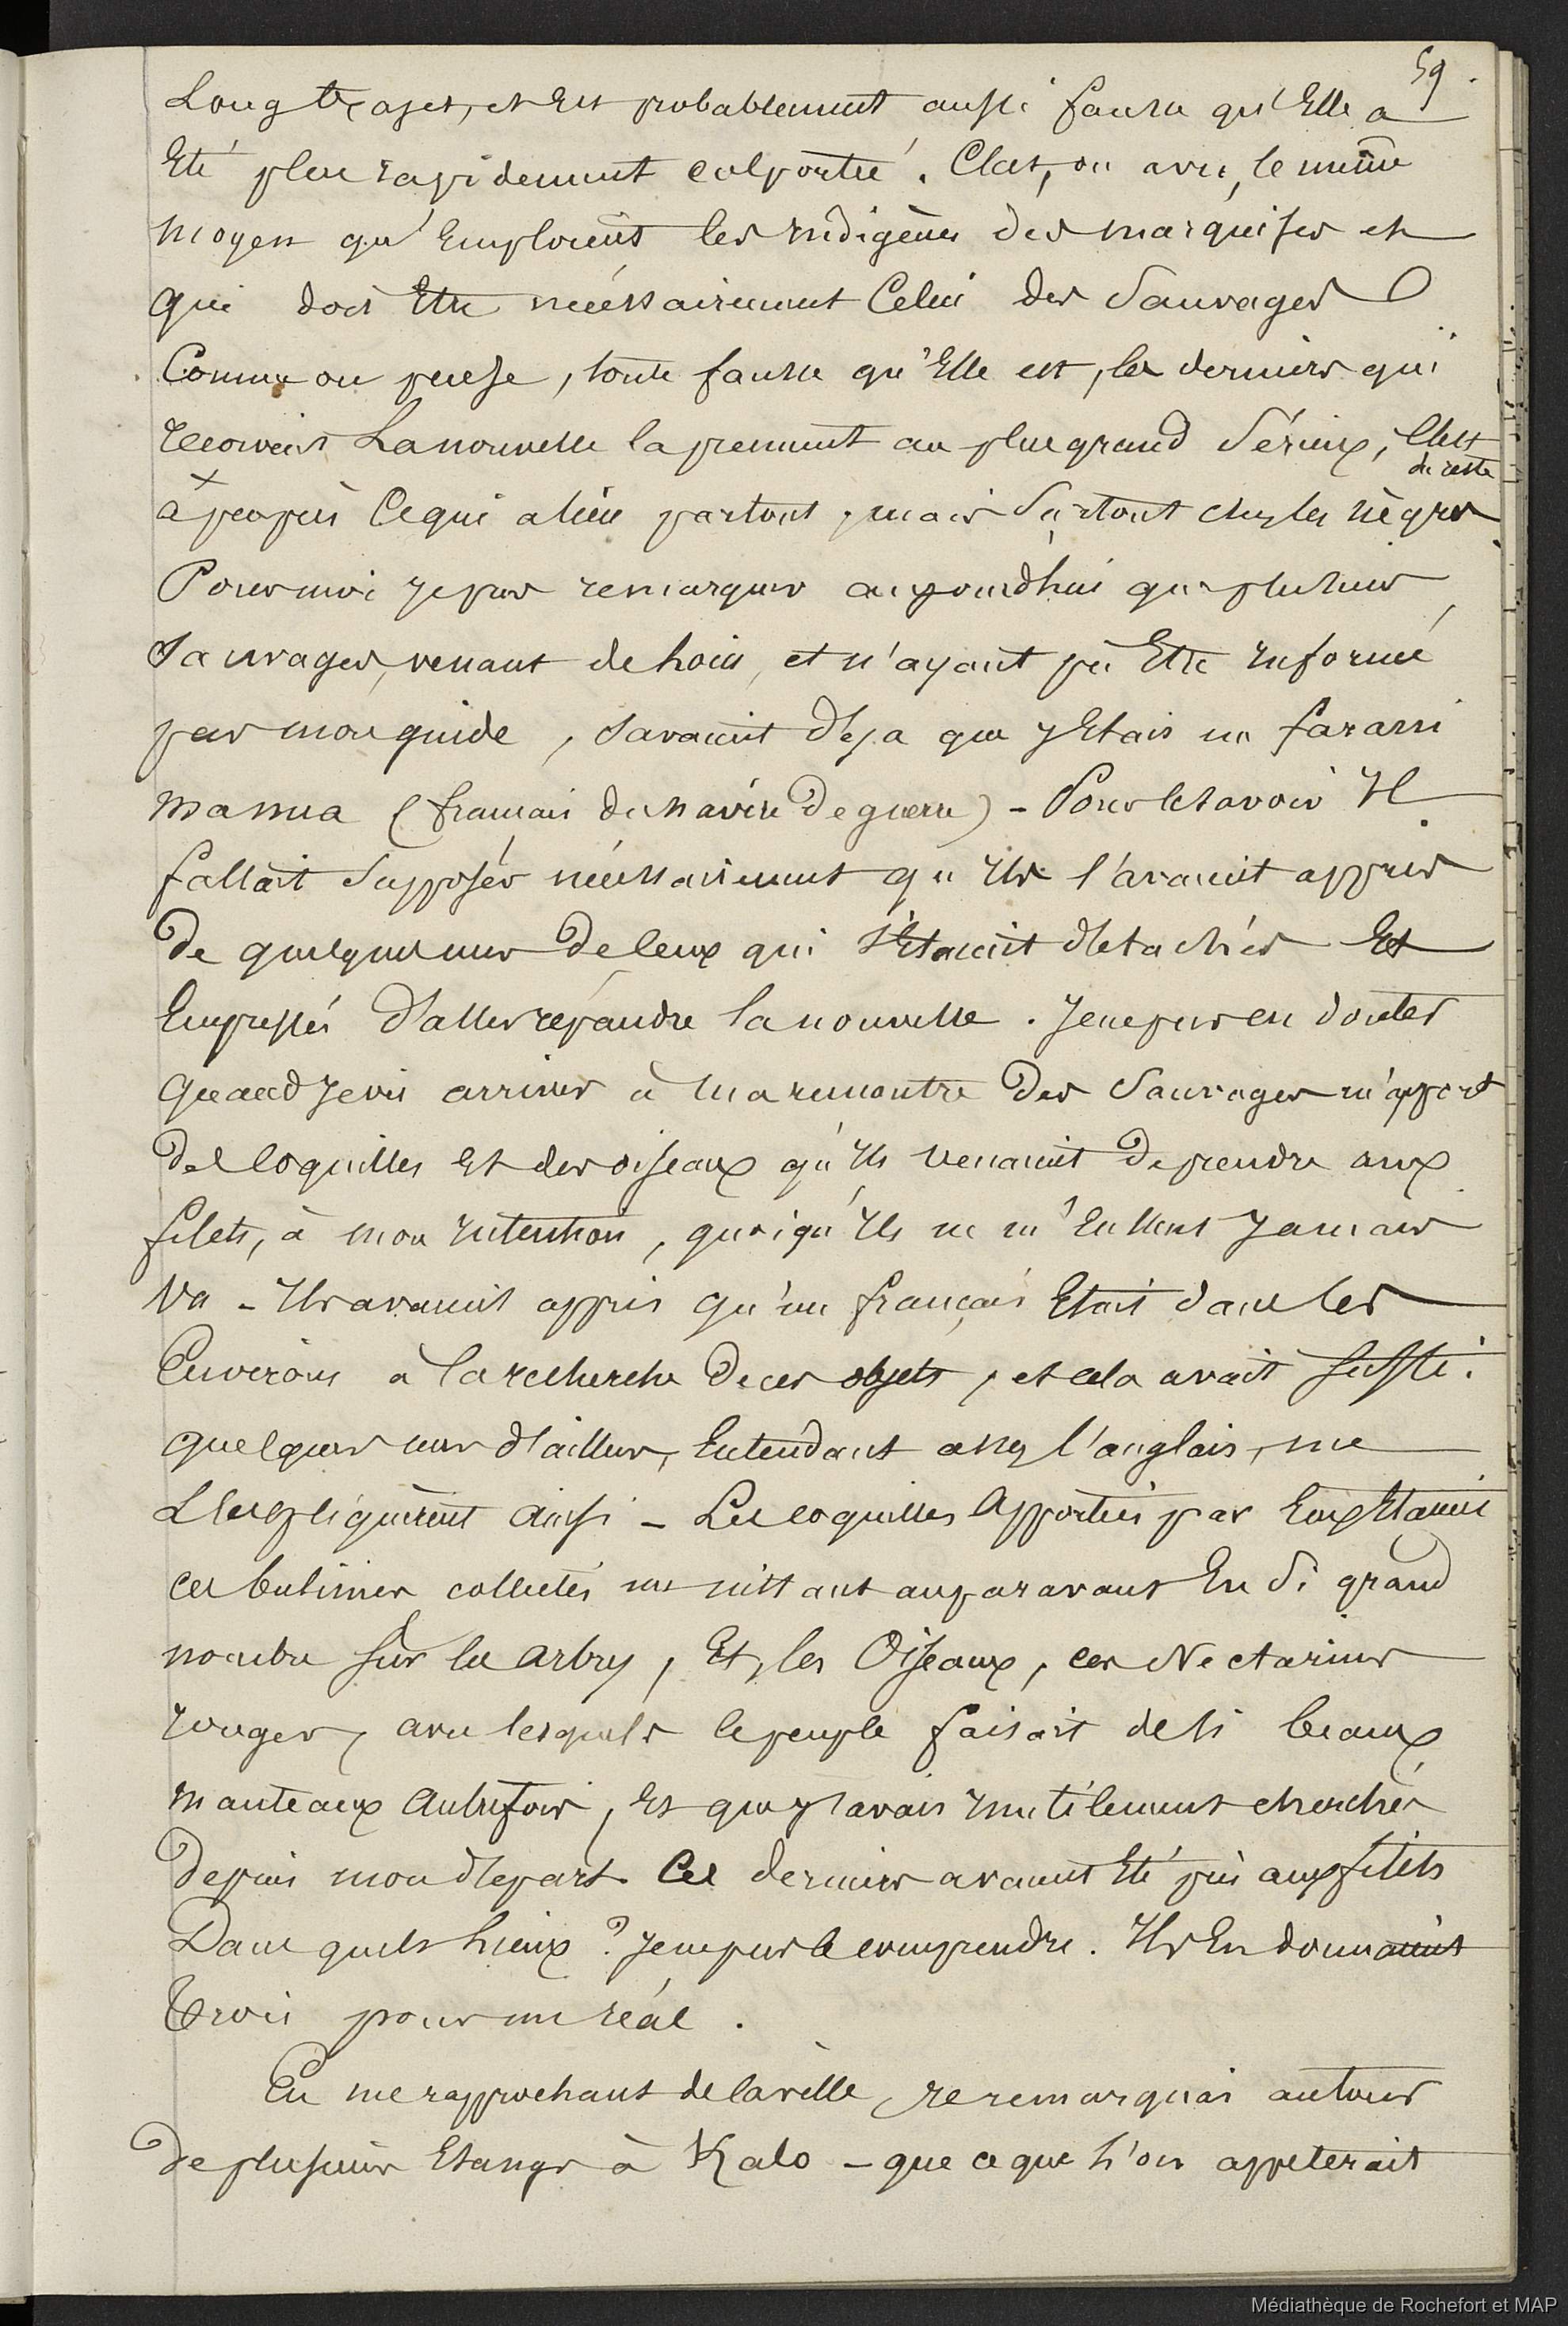 59.
Long trajet, et est probablement aussi fausse qu'Elle a
Eté plus rapidement colportée. C'est, on avu, le même
moyen qu'Emploient les indigènes des marquises et
qui doit Etre nécessairement Celui des Sauvages
Comme on pense, toute fausse qu'Elle est, les derniers qui
recoivent La nouvelle la prennent au plus grand Sérieux, C'est
du reste
à peu près Ce qui a lieu partout, mais Surtout chez les nègres
Pour moi je pus remarquer aujourd'hui que plusieurs
Sauvages, venant de loin, et n'ayant pu Etre informé
par mon guide, Savaient déja que j'Etais un farani
manua (francais du navire De guerre) - Pour le savoir Il
fallait Supposer nécessairement qu'Ils l'avaient appris
De quelques uns De Ceux qui S'Etaient détachés Et
Empressés D'aller répandre la nouvelle. Je ne pus en douter
Quand Je vis arriver à ma rencontre Des Sauvages m'apport
Des Coquilles Et des oiseaux qu'Ils venaient De prendre aux
filets, à mon intention, quoiqu'Ils ne m'Eussent Jamais
Vu - Ils avaient appris qu'un français Etait dans les
Environs à la recherche De ces objets, et cela avait suffi.
quelques uns d'ailleurs, Entendant assez l'anglais, me
L'Expliquèrent ainsi - Les coquilles Apportées par Eux Etaient
ces bulimes collectés un instant auparavant En Si grand
nombre sur les arbres, Et, les Oiseaux, ces Nectarines
rouges, avec lesquels le peuple faisait de si beaux
manteaux Autrefois, Et que j'avais inutilement cherchés
Depuis mon départ. Ces derniers avaient Eté pris aux filets
Dans quels lieux? Je ne pus le comprendre. Ils En donnaient
Trois pour un réal.
En me rapprochant de la ville, je remarquai autour
De plusieurs Etangs à Kalo - que ce que l'on appelerait